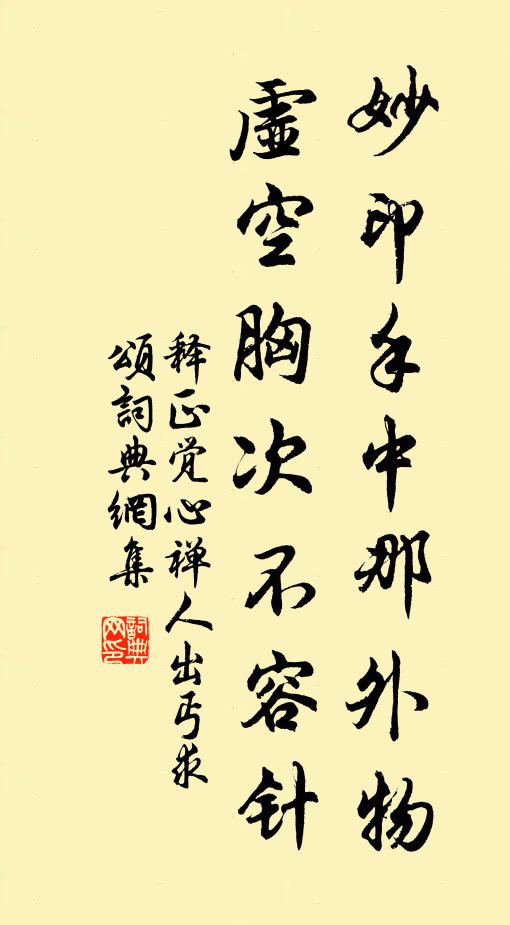 妙印手中那外物
虚空胸次不容针
释正觉心禅人出丐求
頌詞典網集
詞典网印